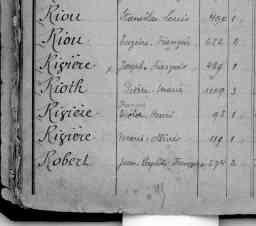 Riou Stanislas Louis 450 1
Riou Eugène François 522 2
Rivière x Joseph François 489 1
Rioth Pierre Marie 1109 3
Rivière Victor Henri 95 1
Rivière Marie 119 1
Robert Jean Baptiste François 594 2